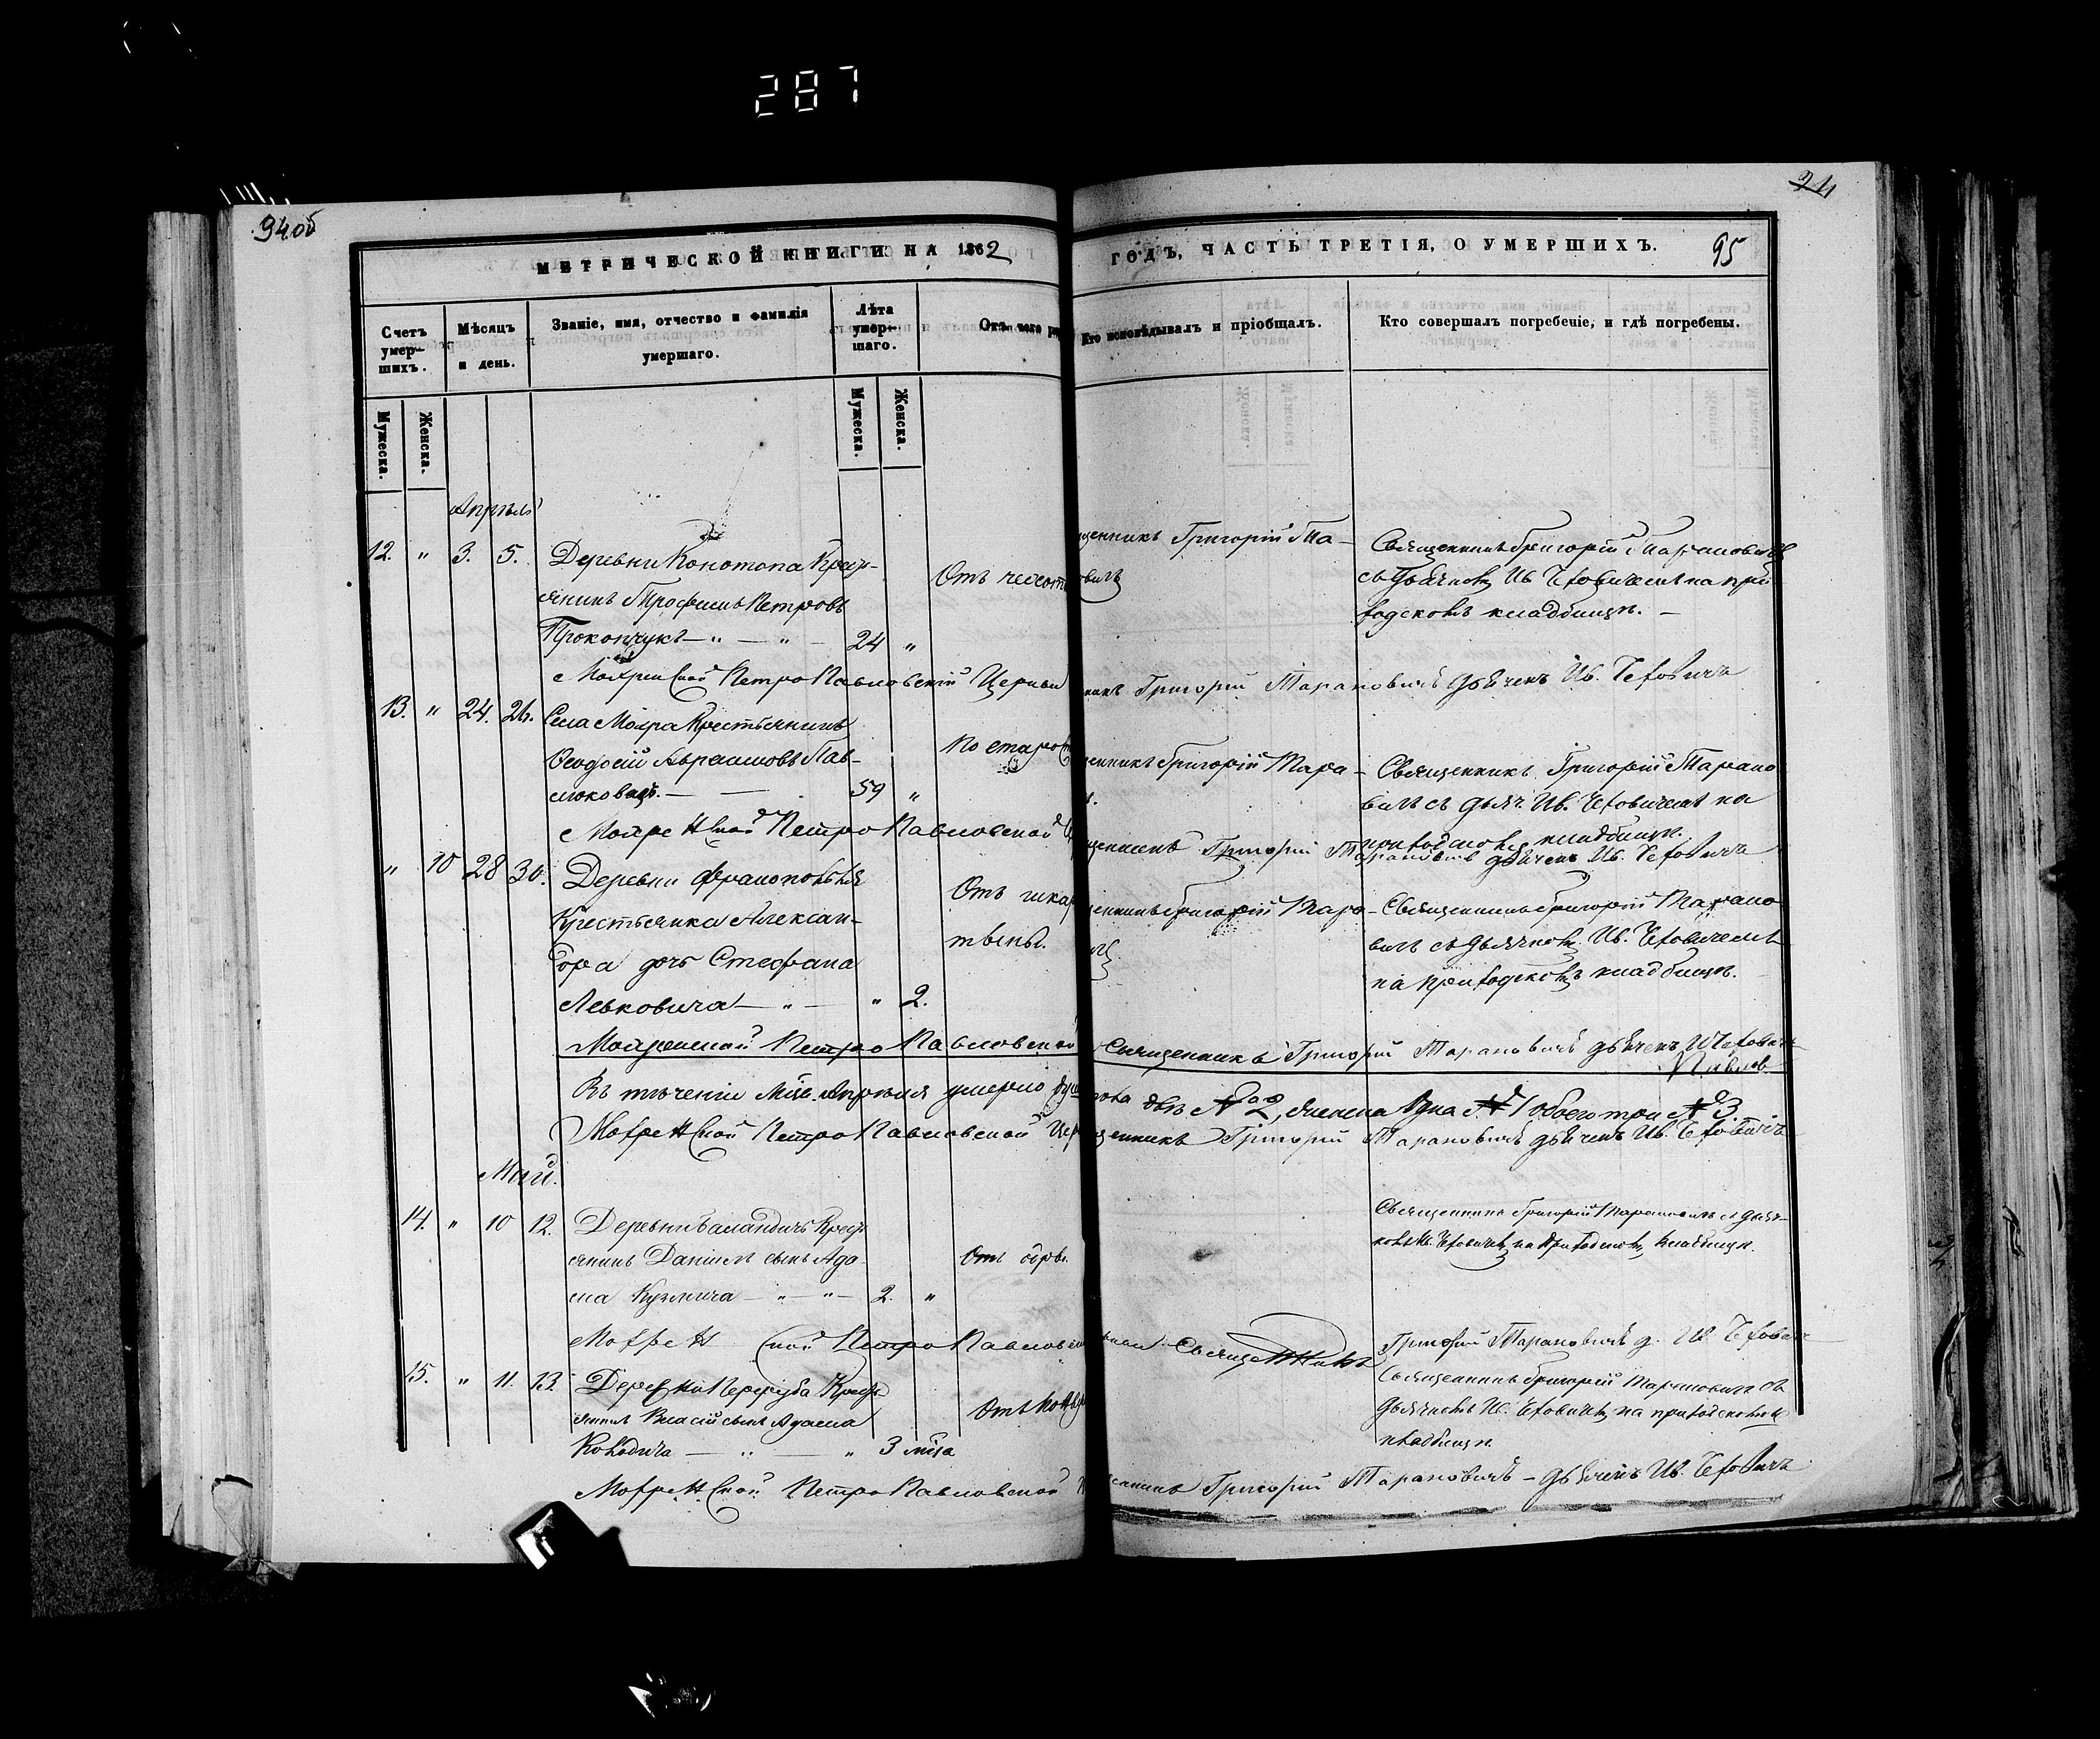 287
94об
24
МЕТРИЧЕСКОЙ КНИГИ НА 1862
ГОДЪ, ЧАСТЬ ТРЕТІЯ, О УМЕРШИХЪ.
95
Счетъ умер-шихъ.
Мѣсяцъ и день.
Званіе, имя, отчество и фамилія умершаго.
Лѣта умер-шаго.
Отъ чего
Кто исповѣдывалъ и пріобщалъ.
Кто совершалъ погребеніе, и гдѣ погребены.
Мужеска.
Женска.
Мужеска.
Женска.
Апрѣль
12. " 3. 5. Деревни Конотопа Крест-
янинъ Трофимъ Петровъ
Прокопчукъ — " — " — 24 "
Отъ чесот
щенникъ Григорій Та-
овичъ
Священникъ Григорій Тарановичъ
съ дьячкомъ Ив. Чеховичемъ на при
ходскомъ кладбищѣ. —
Мохренской Петро Павловскій Церкви
никъ Григорій Тарановичъ дьячекъ Ив. Чеховичъ
13. " 24. 26. Села Мохра Крестьянинъ
Ѳеодосій Авраамовъ Пав-
люковецъ. — — 59 "
По старос
щенникъ Григорій Тара-
Священникъ Григорій Тарано
вичъ съ дьяч. Ив. Чеховичемъ на
приходскомъ кладбищѣ.
Мохренской Петро Павловской Ц
щенникъ Григорій Тарановичъ дьячекъ Ив. Чеховичъ
" 10 28 30. Деревни
Крестьянка Алексан-
дра дочь Стефана
Левковича — " — " 2.
Отъ шкар
тыны.
щенникъ Григорій Тара-
Священникъ Григорій Тарано
вичъ съ дьячкомъ Ив. Чеховичемъ
на приходскомъ кладбищѣ.
Мохренской Петро Павловской
Священникъ Григорій Тарановичъ дьячекъ И Чехович
Въ теченіи Апрѣля умерло
двѣ № 2, женска одна № 1 обоего три № 3.
Мохренской Петро Павловской Цер
щенникъ Григорій Тарановичъ дьячекъ Ив. Чеховичъ
Май.
14. " 10 12. Деревни Баландичъ Крест
янинъ Даніилъ сынъ Ада-
ма Кузмича — " — " — 2. "
Отъ
Священникъ Григорій Тарановичъ съ дьяч-
комъ Ив. Чеховичемъ на приходскомъ кладбищѣ.
Мохренской Петро Павловской
Священникъ
Григорій Тарановичъ д. Ив Чехович
15. " 11. 13. Деревни Перруба Крест
янинъ Власій сынъ Адама
— " — " 3 мѣса
Отъ
Священникъ Григорій Тарановичъ съ
Дьячкомъ Ив. Чеховичемъ на приходскомъ
кладбищѣ.
Мохренской Петро Павловской
щенникъ Григорій Тарановичъ — дьячекъ Ив. Чеховичъ